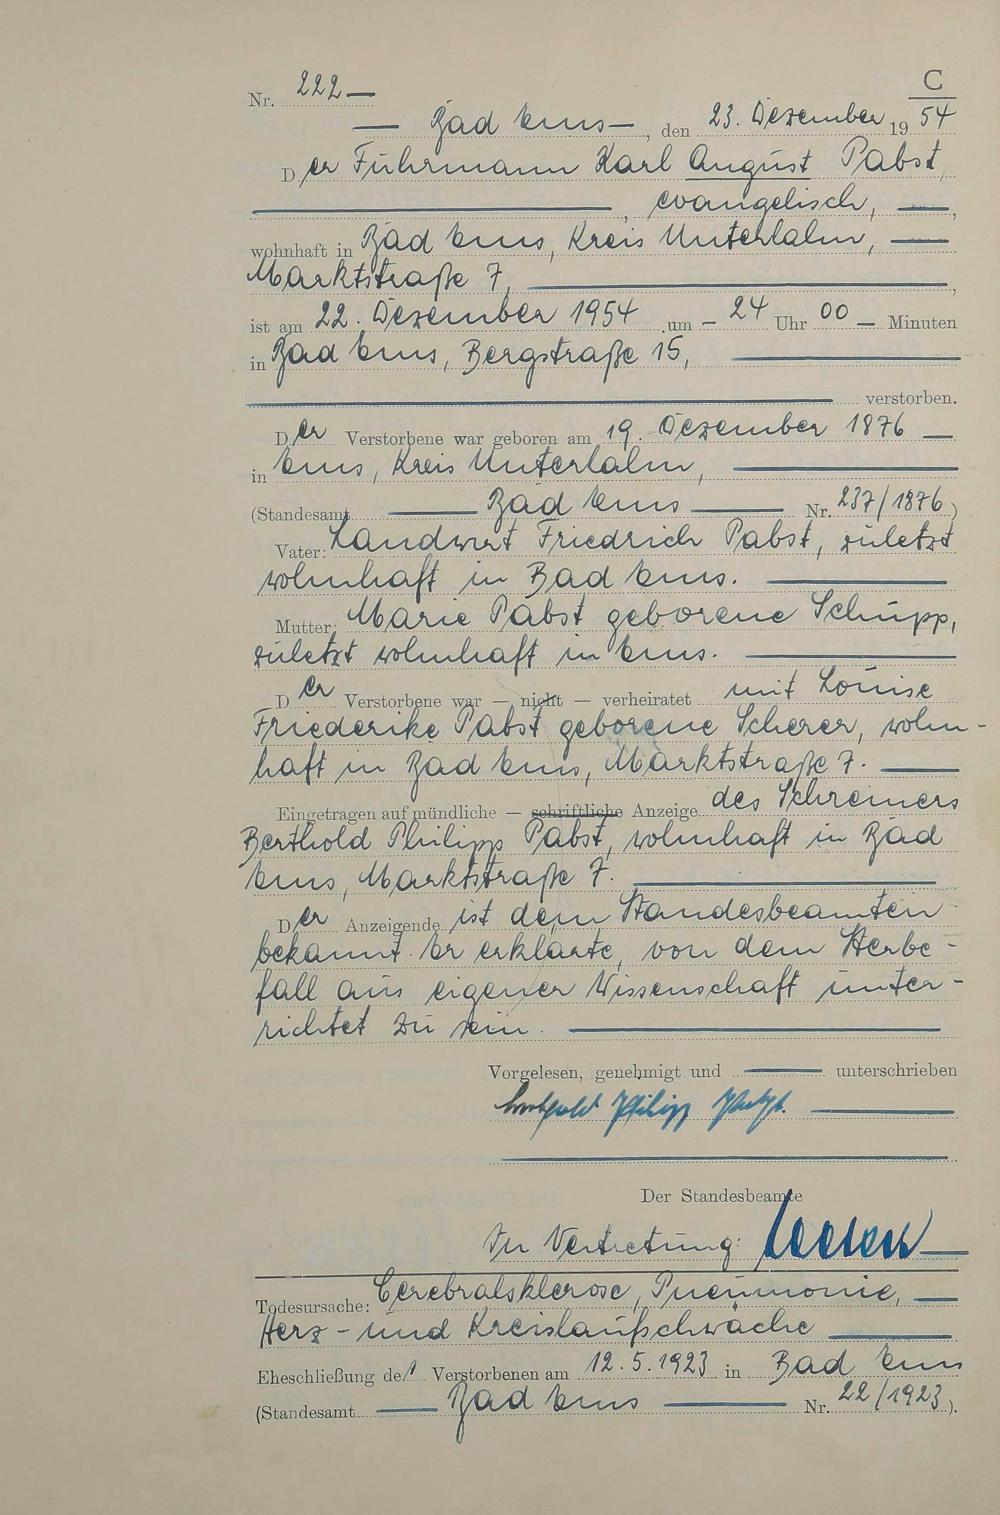 C
Nr. 222 —
— Bad Ems —, den 23. Dezember 19 54
Der Fuhrmann Karl August Pabst,
———, evangelisch, —,
wohnhaft in Bad Ems, Kreis Unterlahn, —
Marktstraße 7, ———,
ist am 22. Dezember 1954 um — 24 Uhr 00 — Minuten
in Bad Ems, Bergstraße 15, ———
——— verstorben.
Der Verstorbene war geboren am 19. Dezember 1876 —
in Ems, Kreis Unterlahn, ———
(Standesamt — Bad Ems — Nr. 237/1876)
Vater: Landwirt Friedrich Pabst, zuletzt
wohnhaft in Bad Ems. ———
Mutter: Marie Pabst geborene Schupp,
zuletzt wohnhaft in Ems. ———
Der Verstorbene war — nicht — verheiratet mit Louise
Friederike Pabst geborene Scherer, wohn-
haft in Bad Ems, Marktstraße 7. —
Eingetragen auf mündliche — schriftliche Anzeige des Schreiners
Berthold Philipp Pabst, wohnhaft in Bad
Ems, Marktstraße 7. ———
Der Anzeigende ist dem Standesbeamten
bekannt. Er erklärte, von dem Sterbe-
fall aus eigener Wissenschaft unter-
richtet zu sein. ———
Vorgelesen, genehmigt und — unterschrieben
Berthold Philipp Pabst. ———
Der Standesbeamte
In Vertretung:
Todesursache: Cerebralsklerose, Pneumonie, —
Herz- und Kreislaufschwäche ———
Eheschließung des Verstorbenen am 12.5.1923 in Bad Ems
(Standesamt — Bad Ems — Nr. 22/1923).